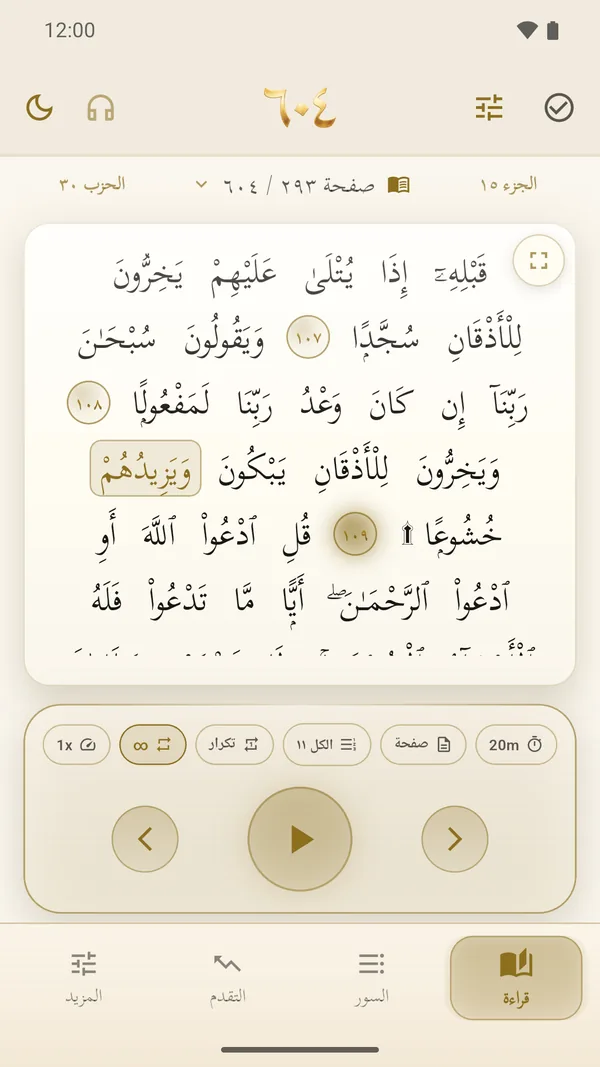 12:00
٦٠٤
الجزء ١٥
صفحة ٢٩٣ / ٦٠٤
الحزب ٣٠
قَبْلِهِۦٓ إِذَا يُتْلَىٰ عَلَيْهِمْ يَخِرُّونَ
لِلْأَذْقَانِ سُجَّدًۭا ١٠٧ وَيَقُولُونَ سُبْحَـٰنَ
رَبِّنَآ إِن كَانَ وَعْدُ رَبِّنَا لَمَفْعُولًۭا ١٠٨
وَيَخِرُّونَ لِلْأَذْقَانِ يَبْكُونَ وَيَزِيدُهُمْ
خُشُوعًۭا ۩ ١٠٩ قُلِ ٱدْعُوا۟ ٱللَّهَ أَوِ
ٱدْعُوا۟ ٱلرَّحْمَـٰنَ ۖ أَيًّۭا مَّا تَدْعُوا۟ فَلَهُ
20m
صفحة
الكل ١١
تكرار
∞
1x
قراءة
السور
التقدم
المزيد